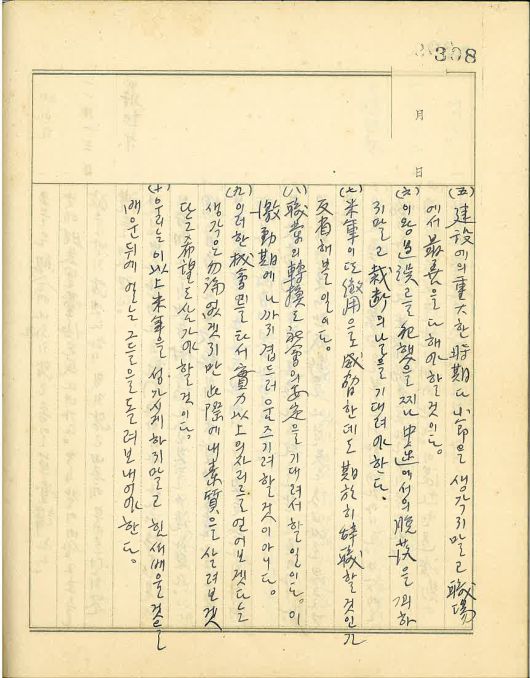 308
月
日
(五) 建設에의 重大한 時期다 小節을 생각지말고 職場
에서 最善을 다해야할것이다.
(六) 이왕 過誤를 犯했을찌나 中途에서의 脫落을 꾀하
지말고 裁断의 날을 기대려야한다.
(七) 米軍이 또 徵用으로 威脅한데도 期於히 辞職할것인가
反省해볼일이다.
(八) 職業의 轉換도 社會의 安定을 기대려서 할일이다. 이
激動期에 나까지 겹드러 운즈기려할것이아니다.
(九) 이러한 機會를 타서 實力以上의 자리를 얻어보겟다는
생각은 勿論없겟지만 此際에 내 素質을 살려보겟
단 그 希望도 삼가야할것이다.
(十) 우리는 이以上 米軍을 성가시게 하지말고 힌새 배울것을
배운뒤에 얼는 그들을 돌려보내어야한다.